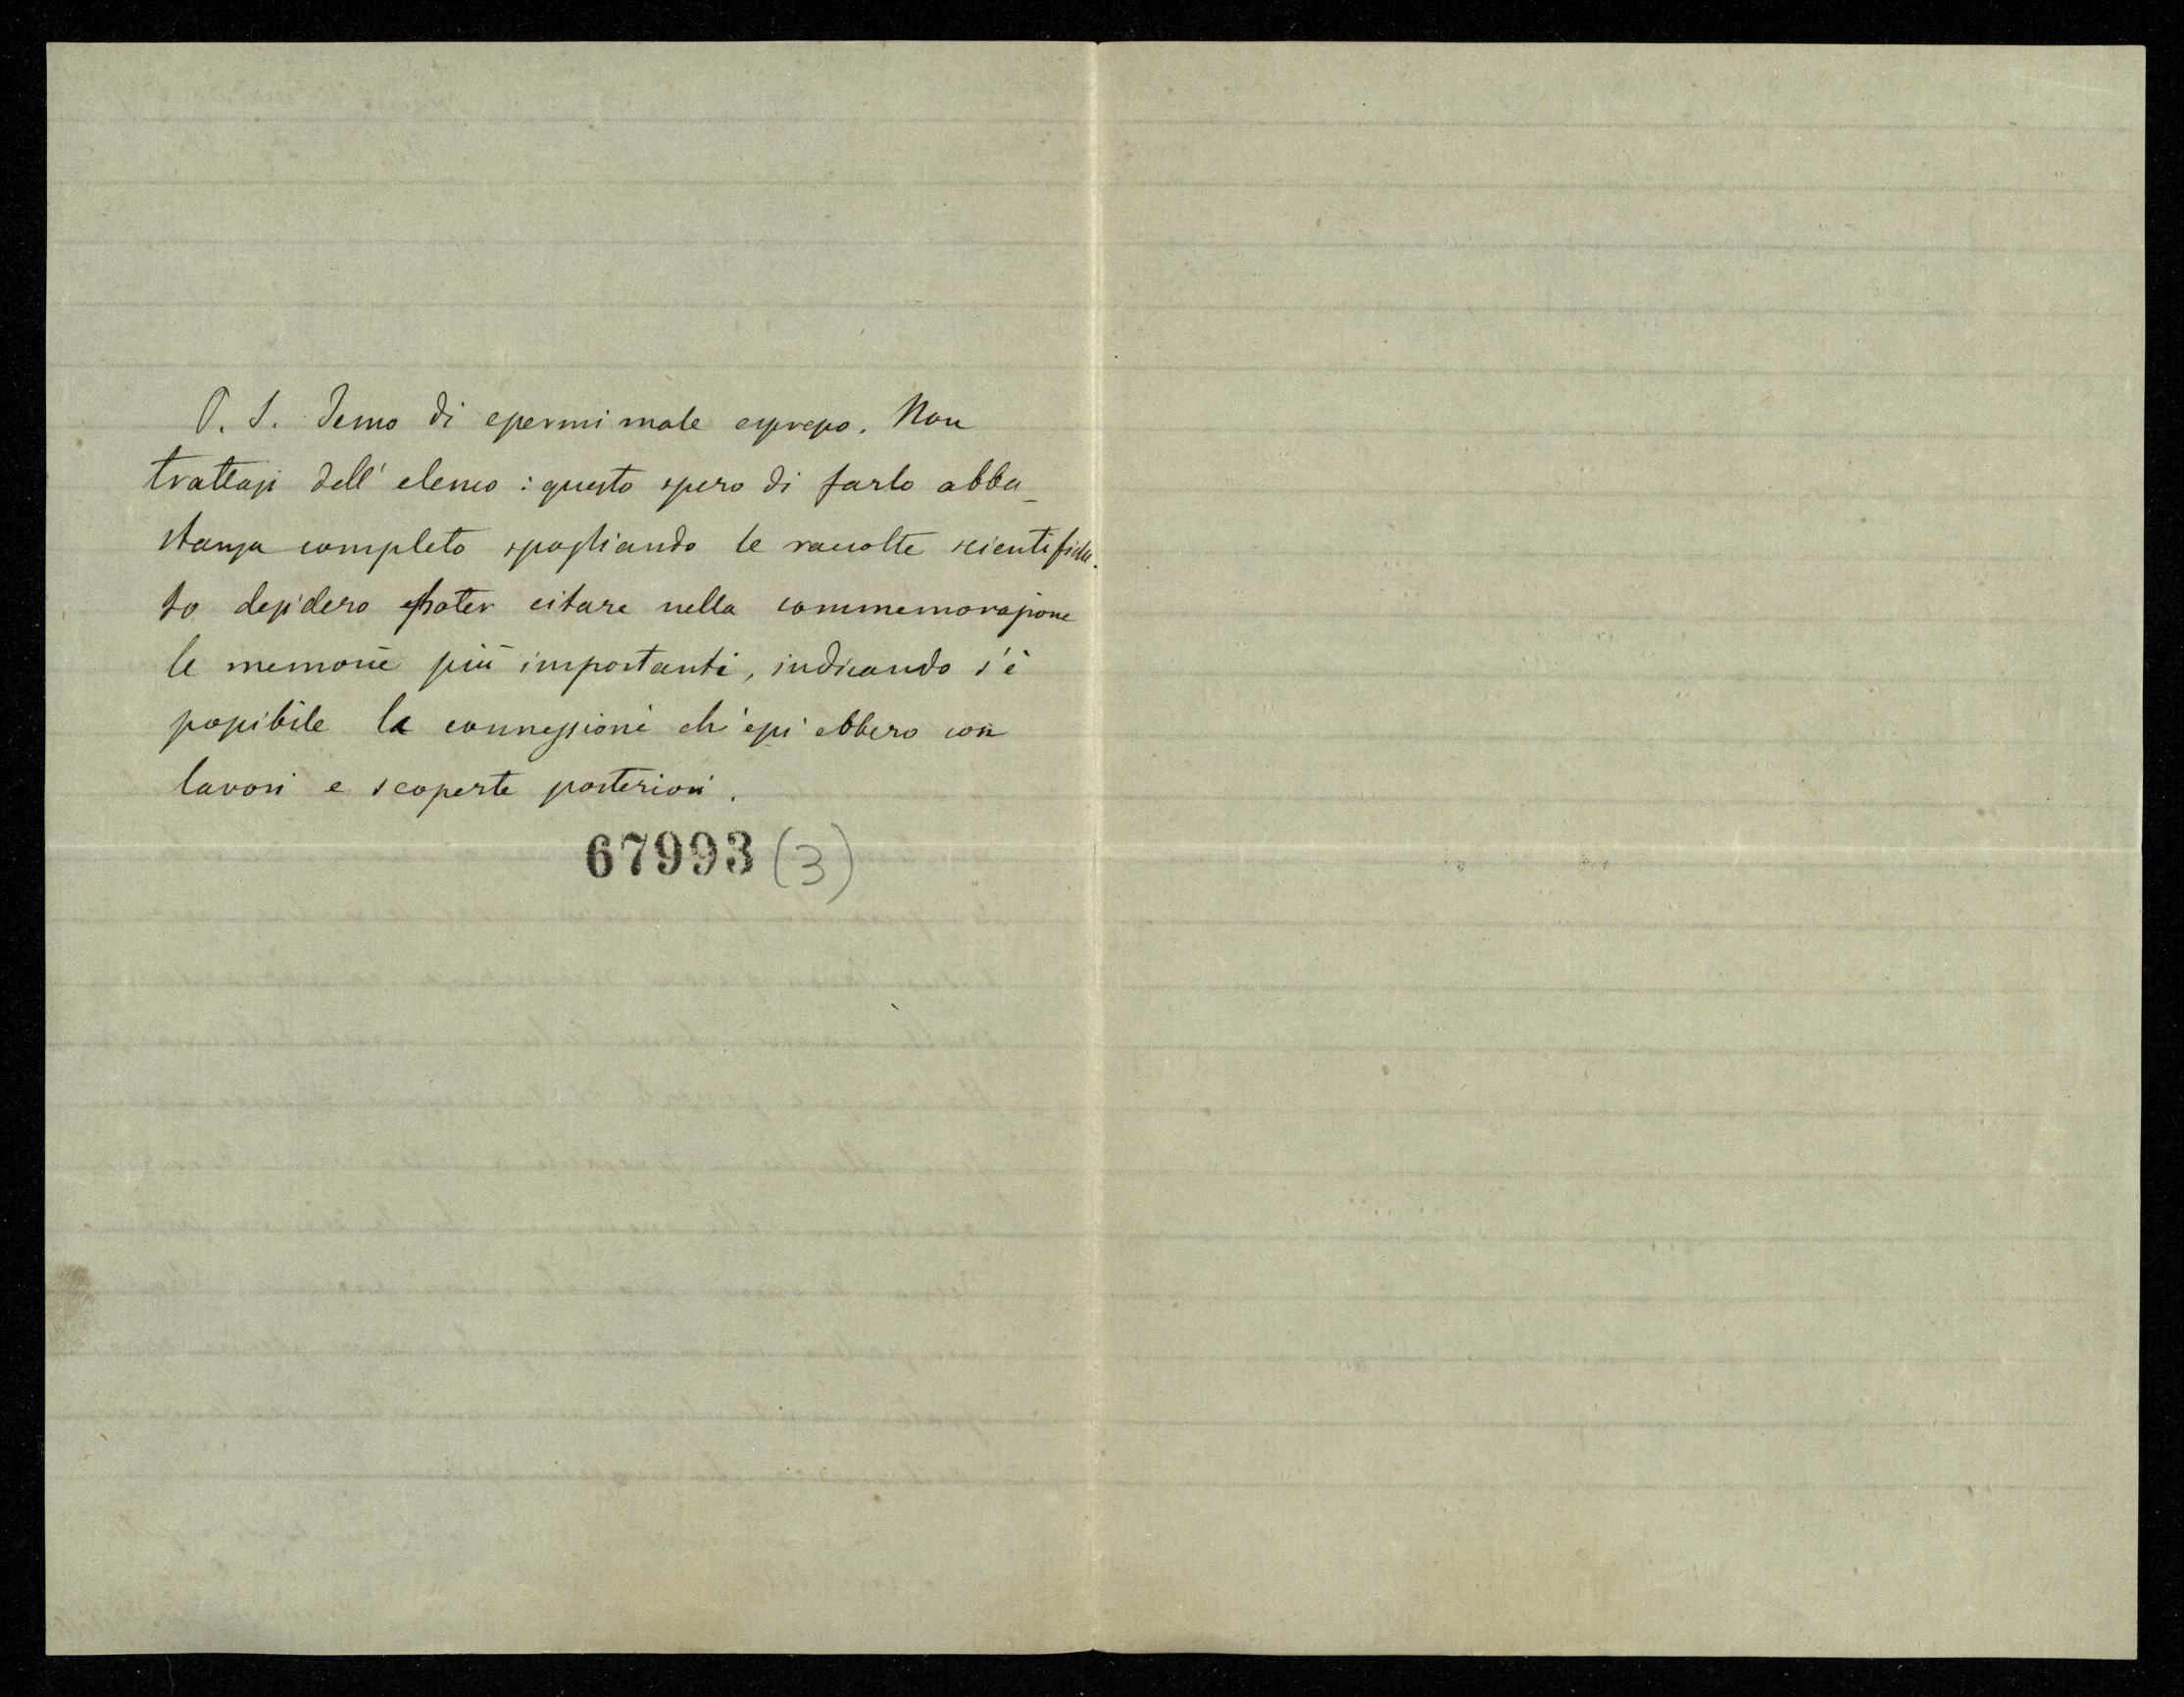 P. S. Temo di essermi male espresso. Non
trattasi dell' elenco : questo spero di farlo abba-
stanza completo spogliando le raccolte scientifiche.
Io desidero poter citare nella commemorazione
le memorie più importanti, indicando s'è
possibile la connessione ch'essi ebbero con
lavori e scoperte posteriori.
67993 (3)